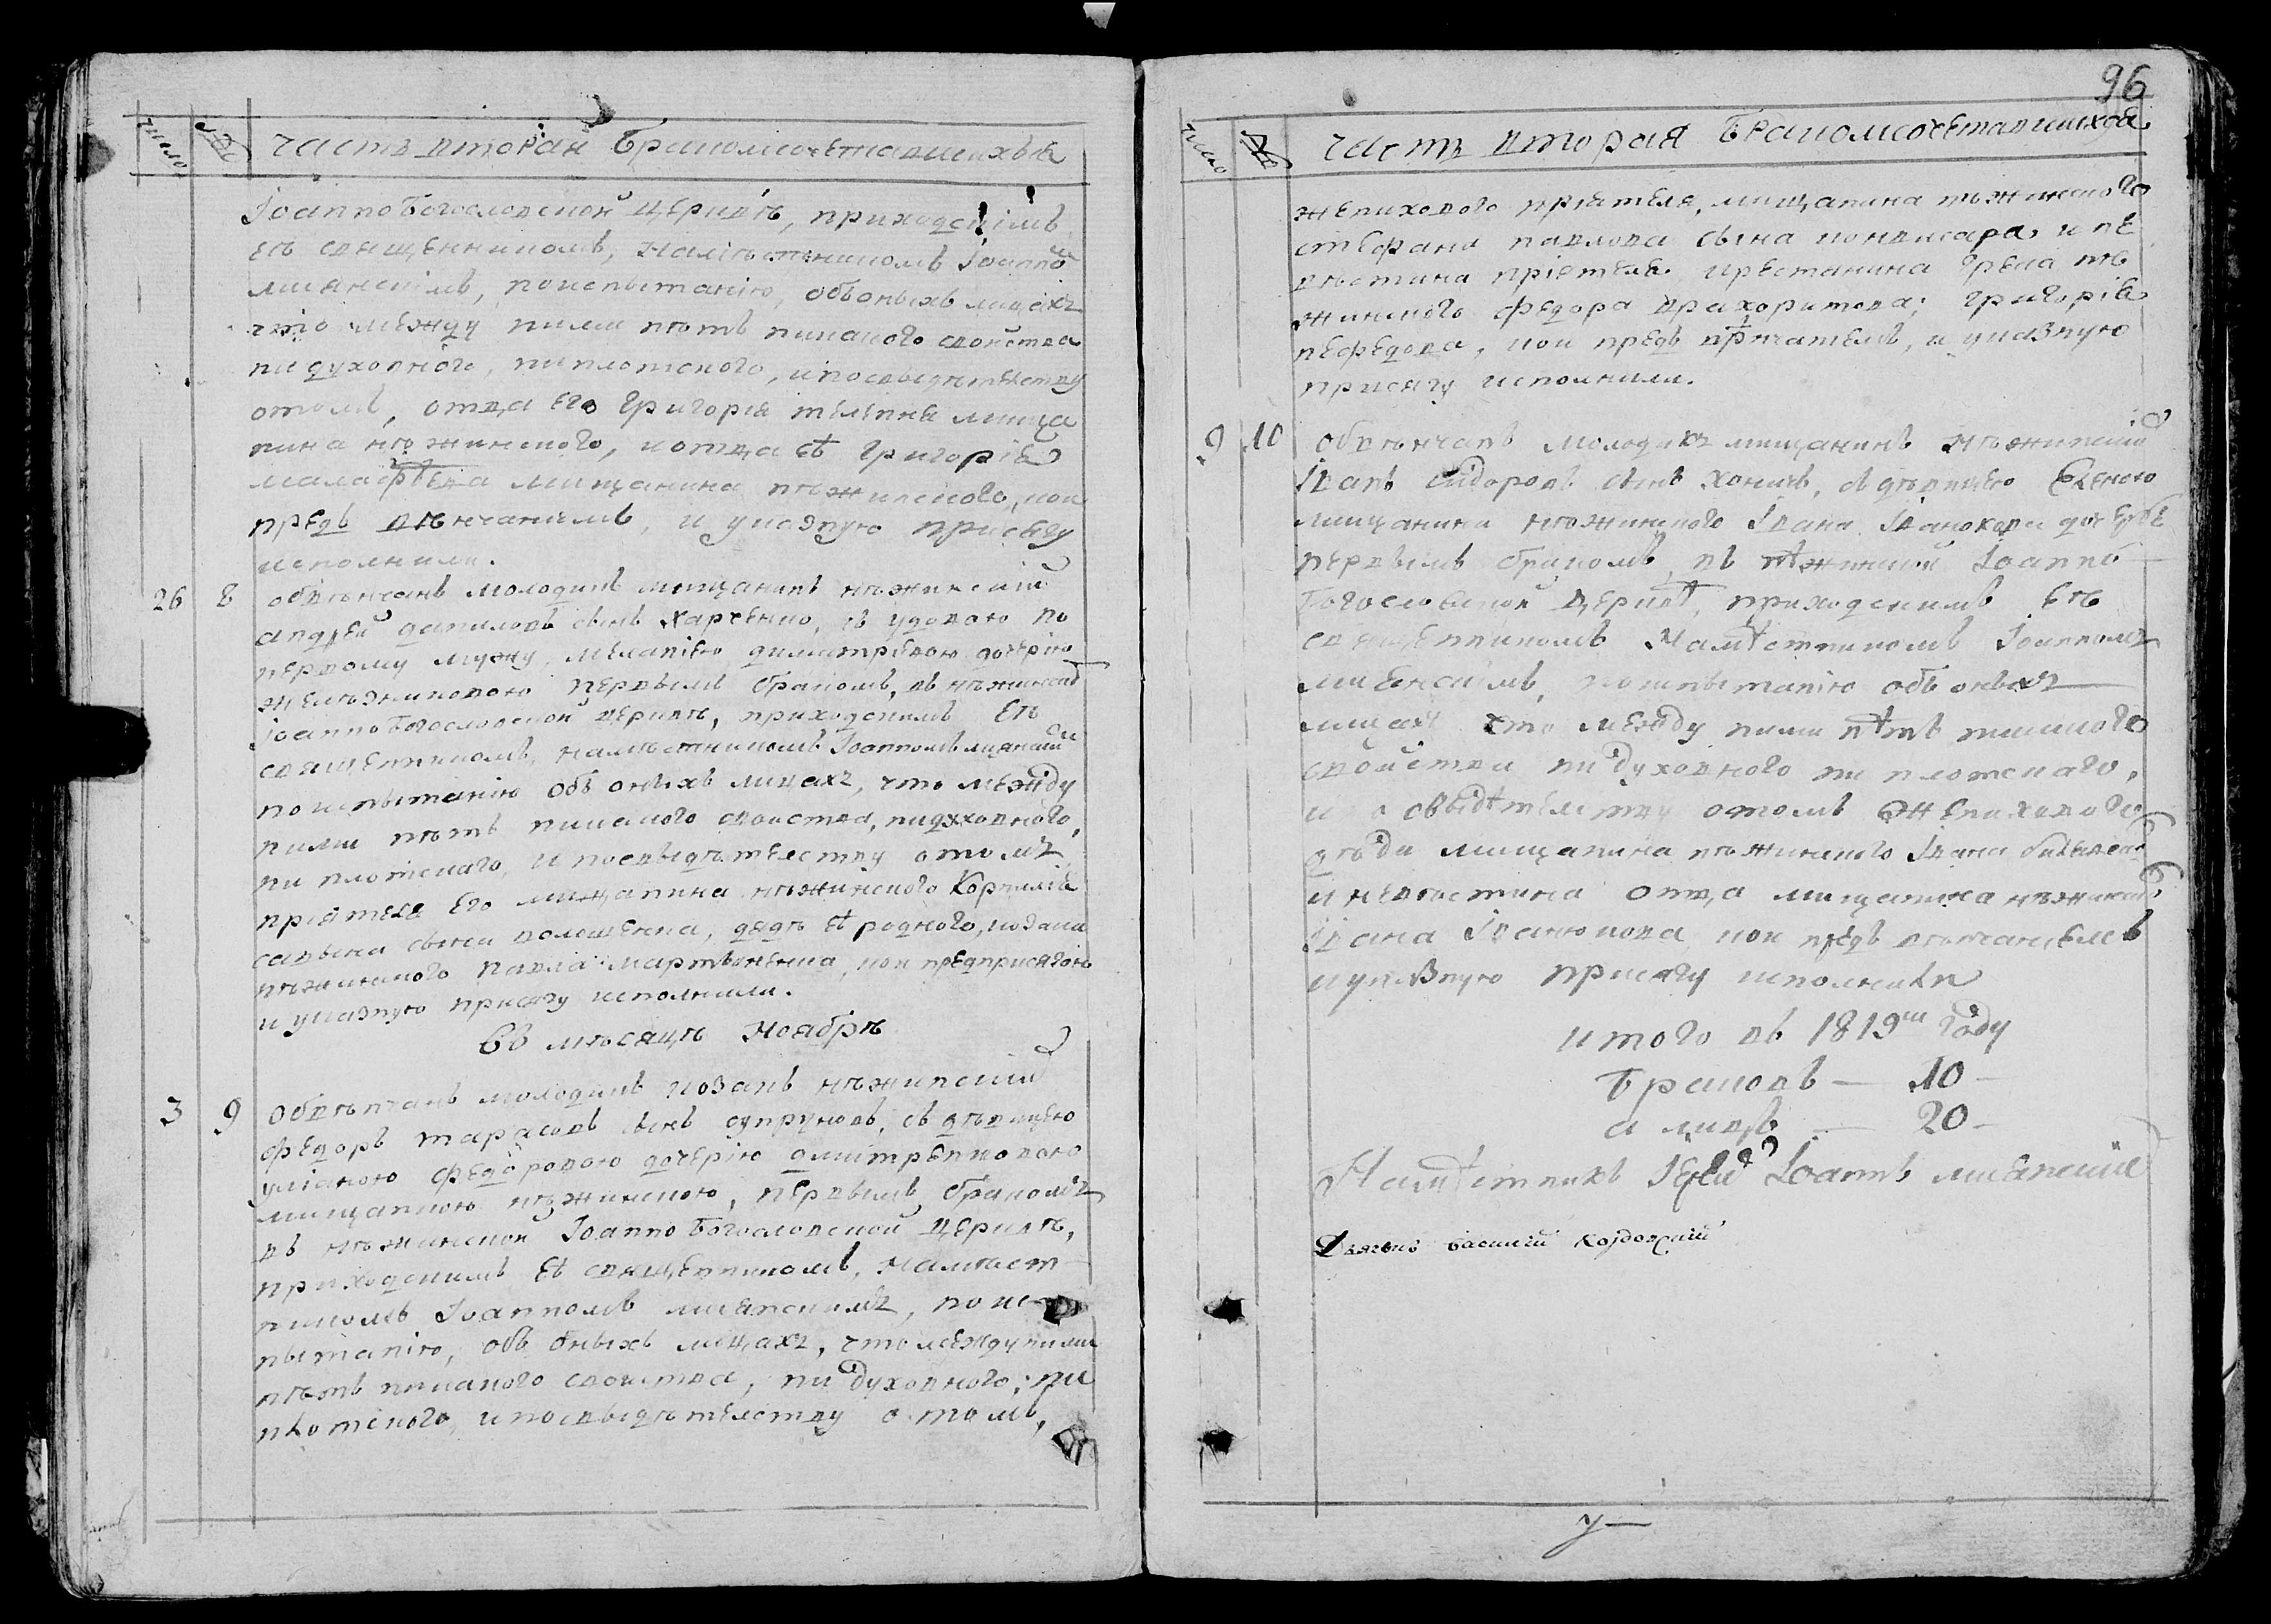 число
№
часть вторая Бракомсочетавшихся
Іоанно Богословской церквѣ, приходскімъ
еѣ священникомъ, намѣстникомъ Іоанно
міянскімъ, поиспытанію, объоныхъ лицахъ
что между ними нѣтъ никакого свойства
ни духовного, ни плотского, ипосвыдѣтелству
отомъ, отца его Григорія телепня мища
нина нѣжинского, иотца еѣ Григоріе
малафѣева мищанина нѣжинского, кои
предъ вѣнчаніемъ, и указную присягу
исполнили.
26 8 обвѣнчанъ молодикъ мищанинъ нѣжинскій
андрей даниловъ сынъ Харченко, съ удовою по
первому мужу, меланіею димитріевою дочерію
желѣзниковою первымъ бракомъ, въ нѣжинской
Іоанно Богословской церквѣ, приходскимъ еѣ
священникомъ, намѣстникомъ Іоанномъ міянскимъ
поиспытанію объ оныхъ лицахъ, что между
ними нѣтъ никакого свойства, нидуховного,
ни плотскаго, и посвыдѣтелству отомъ
пріятеля его мищанина нѣжинского Корнилія
саввина сына волошенка, дядѣ еѣ родного, козака
нѣжинского Павла Мартыненка, кои предприсягою
и указную присягу исполнили.
Въ мѣсяцѣ Ноябрѣ
3 9 Обвѣнчанъ молодикъ козакъ нѣжинскій
Федоръ тарасовъ сынъ супруновъ, съ дѣвицею
уліаною федоровою дочерію дмитренковою
мищанкою нѣжинскою, первымъ бракомъ
въ нѣжинской Іоанно Богословской церквѣ,
приходскимъ еѣ священникомъ, Намѣст
никомъ Іоанномъ міянскимъ, поис
пытанію, объ оныхъ лицахъ, что между ними
нѣтъ никакого свойства, ни духовного, ни
плотского, ипосвыдѣтелству о томъ,
96
число
№
часть вторая Бракомсочетавшихся
женихового пріятеля, мищанина нѣжинского
стефана павлова сына кондисара, и не
вѣстина пріятеля грека нѣ
жинского федора; григоріе
нефедова, кои предъ вѣнчаніемъ, и указную
присягу исполнили.
9 10 Обвѣнчанъ молодикъ мищанинъ нѣжинскій
Іванъ сидоровъ сынъ, съ дѣвицею Еленою
мищанина нѣжинского Івана дочерію
первымъ бракомъ, въ нѣжинской Іоанно
Богословской церквѣ, приходскимъ еѣ
священникомъ Намѣстникомъ Іоанномъ
міянскімъ, поиспытанію объ оныхъ
лицахъ что между ними нѣтъ никакого
свойства ни духовного ни плотскаго,
и по свыдѣтелству отомъ жениховаго
дѣди мищанина нѣжинского Івана
и невѣстина отца мищанина нѣжинского
Івана Іванюкова кои предъ вѣнчаніемъ
и указную присягу исполнили
итого въ 1819м году
браковъ — 10 —
а лицъ — 20 —
Намѣстникъ Іерей Іоаннъ міянскій
Дяченъ Василій Козловскій